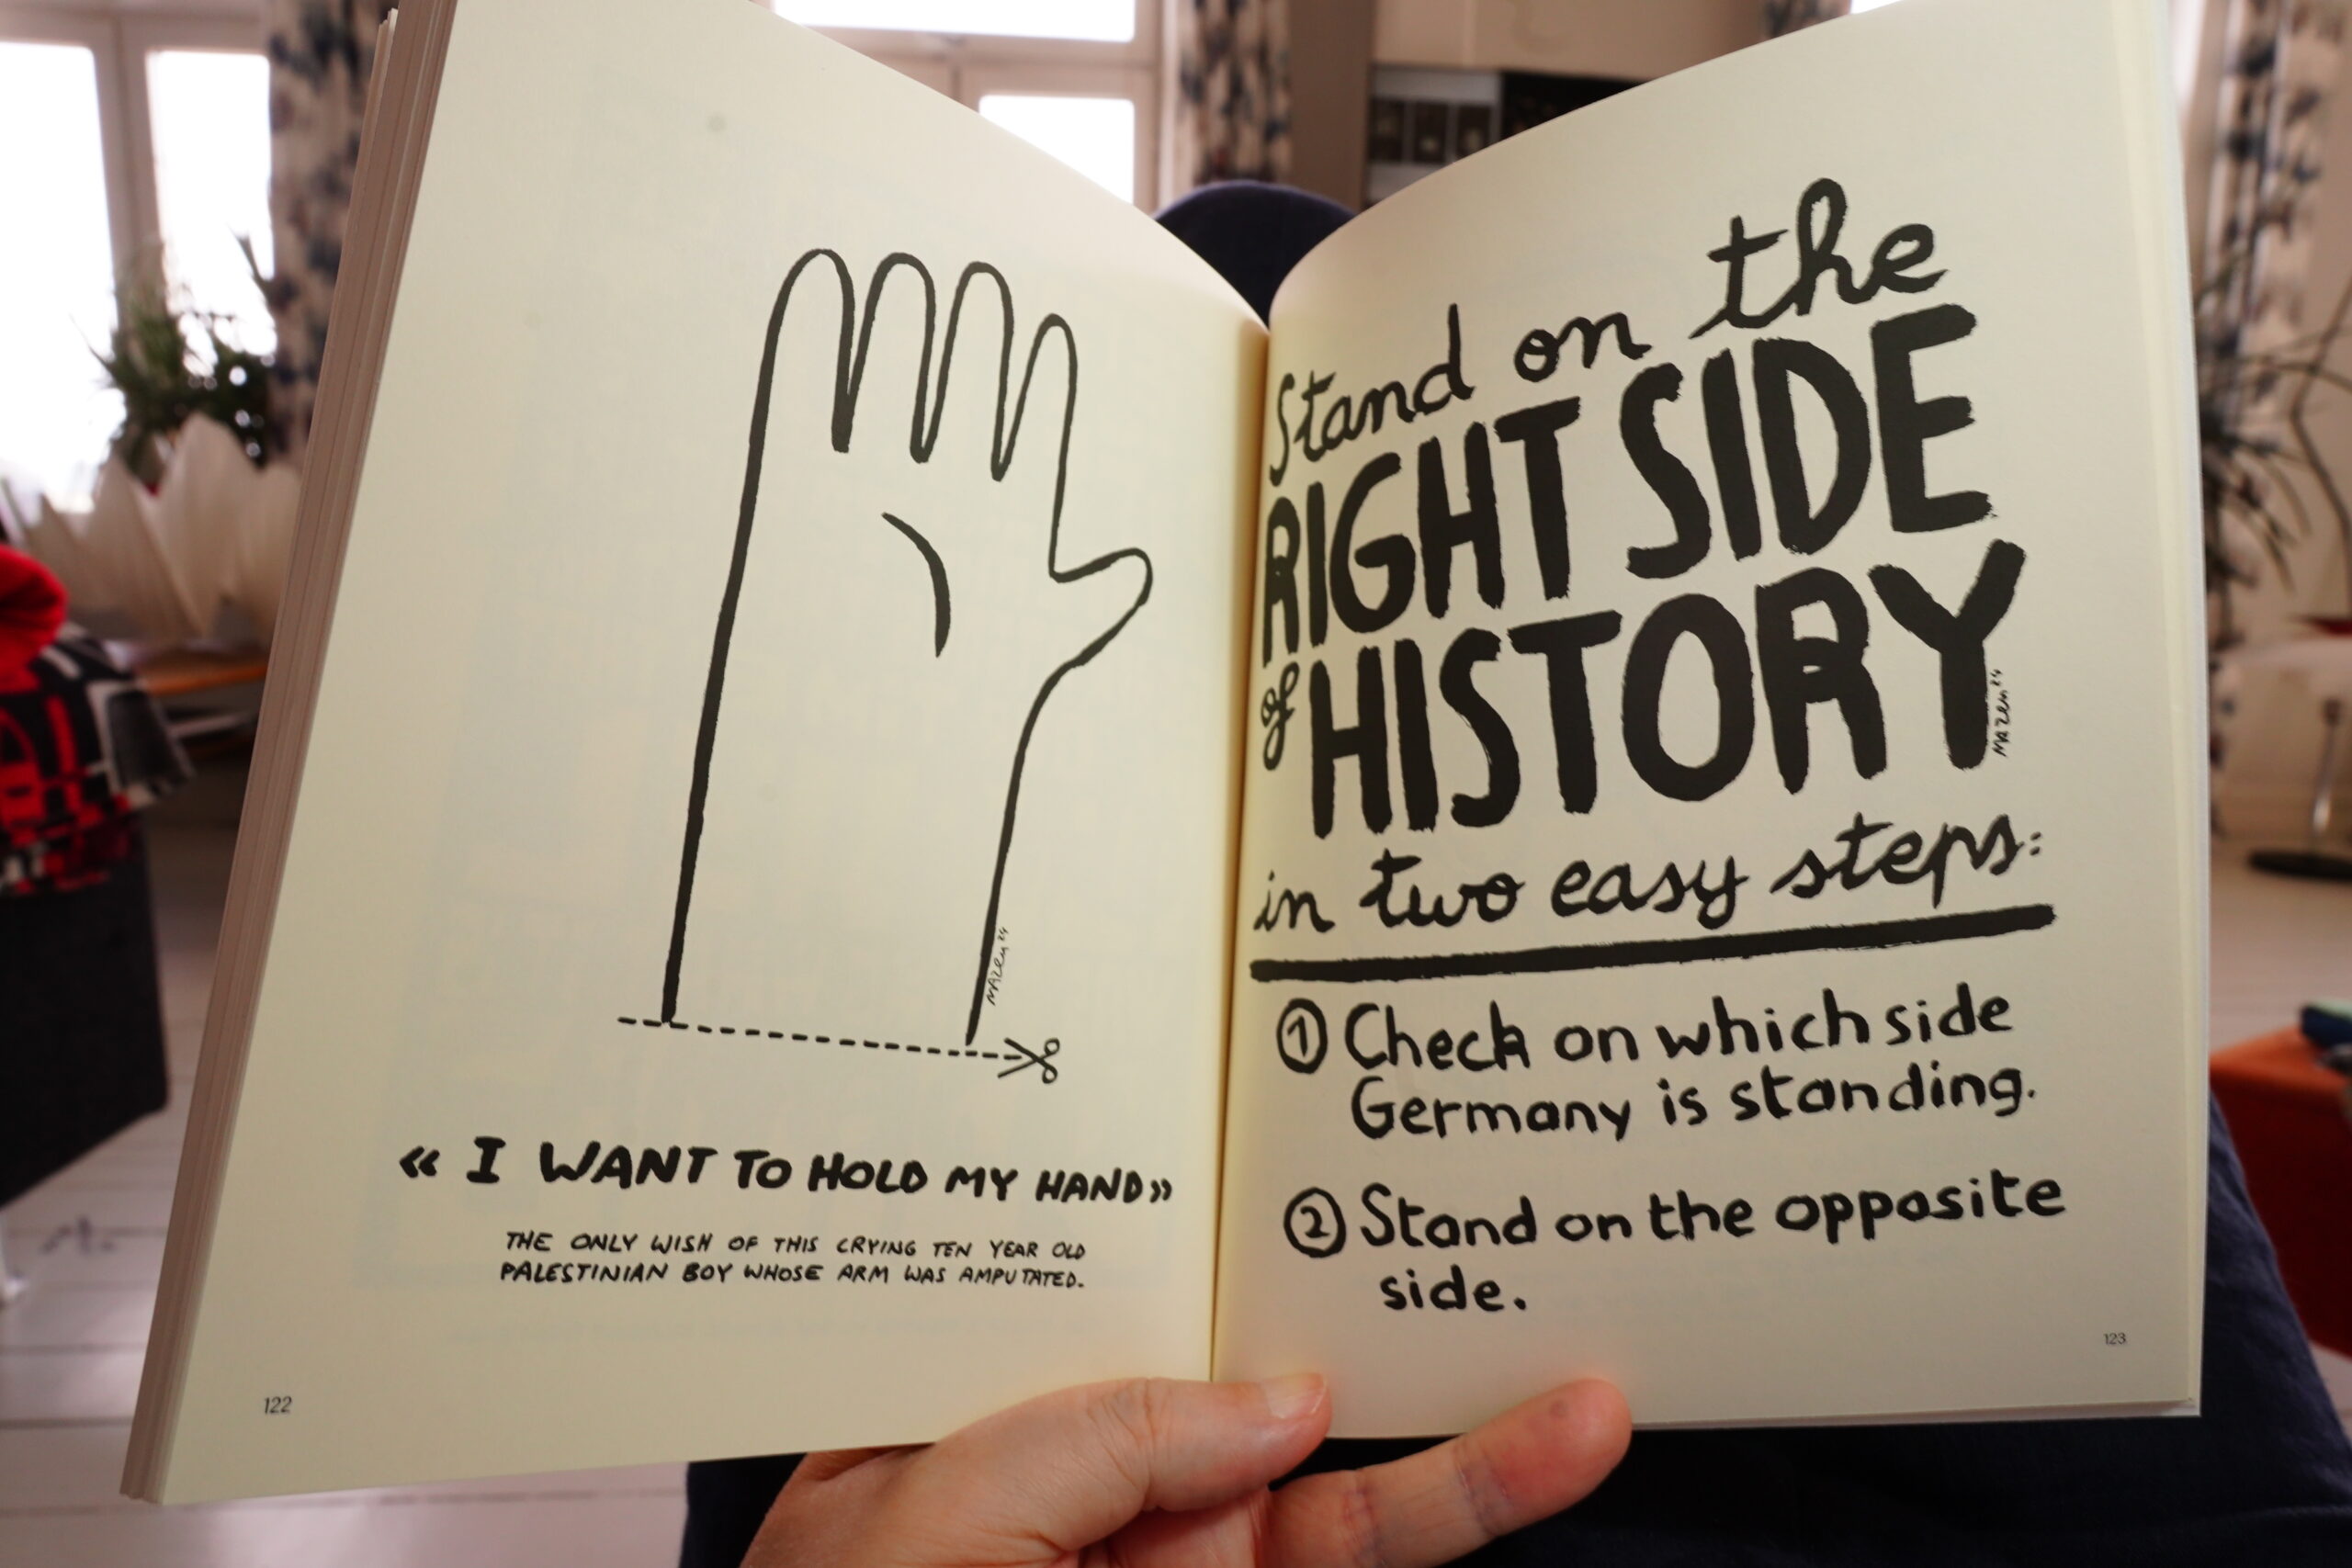 MAZEN 24
« I WANT TO HOLD MY HAND»
THE ONLY WISH OF THIS CRYING TEN YEAR OLD
PALESTINIAN BOY WHOSE ARM WAS AMPUTATED.
122
Stand on the
RIGHT SIDE
of HISTORY
MAZEN 24
in two easy steps:
① Check on which side
Germany is standing.
② Stand on the opposite
side.
123